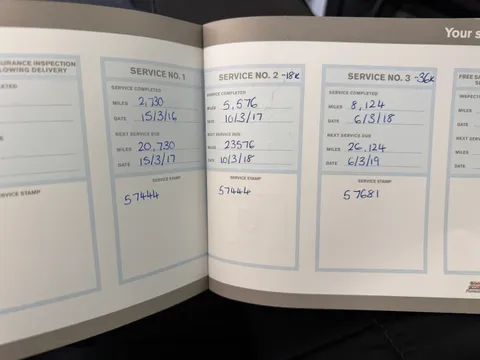 Your s
SURANCE INSPECTION
LOWING DELIVERY
ETED
SERVICE STAMP
SERVICE NO. 1
SERVICE COMPLETED
MILES 2,730
DATE 15/3/16
NEXT SERVICE DUE
MILES 20,730
DATE 15/3/17
SERVICE STAMP
57444
SERVICE NO. 2 -18k
SERVICE COMPLETED
MILES 5,576
DATE 10/3/17
NEXT SERVICE DUE
MILES 23576
DATE 10/3/18
SERVICE STAMP
57444
SERVICE NO. 3 -36k
SERVICE COMPLETED
MILES 8,124
DATE 6/3/18
NEXT SERVICE DUE
MILES 26,124
DATE 6/3/19
SERVICE STAMP
57681
FREE SA
INSPECT
MILES
DATE
NEXT SE
MILES
DATE